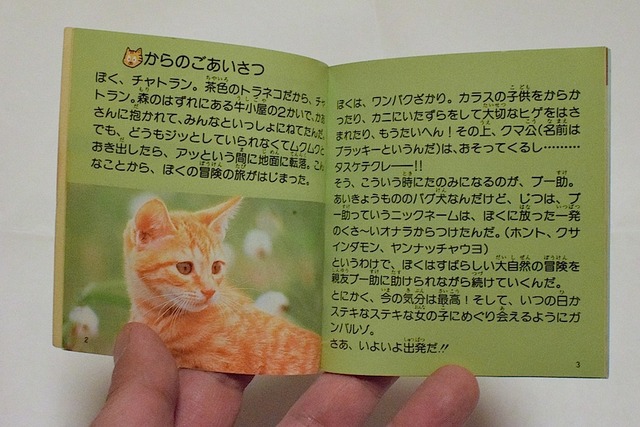 からのごあいさつ
ぼく、チャトラン。茶色のトラネコだから、チャ
トラン。森のはずれにある牛小屋の2かいで、かあ
さんに抱かれて、みんなといっしょにねてたんだ。
でも、どうもジッとしていられなくてムクムクと
おき出したら、アッという間に地面に転落。こん
なことから、ぼくの冒険の旅がはじまった。
2
ぼくは、ワンパクざかり。カラスの子供をからか
ったり、カニにいたずらをして大切なヒゲをはさ
まれたり、もうたいへん！その上、クマ公(名前は
ブラッキーというんだ)は、おそってくるし………
タスケテクレ——!!
そう、こういう時にたのみになるのが、プー助。
あいきょうもののパグ犬なんだけど、じつは、プ
ー助っていうニックネームは、ぼくに放った一発
のくさ〜いオナラからつけたんだ。(ホント、クサ
インダモン、ヤンナッチャウヨ)
というわけで、ぼくはすばらしい大自然の冒険を
親友プー助に助けられながら続けていくんだ。
とにかく、今の気分は最高！そして、いつの日か
ステキなステキな女の子にめぐり会えるようにガ
ンバルゾ。
さあ、いよいよ出発だ!!
3